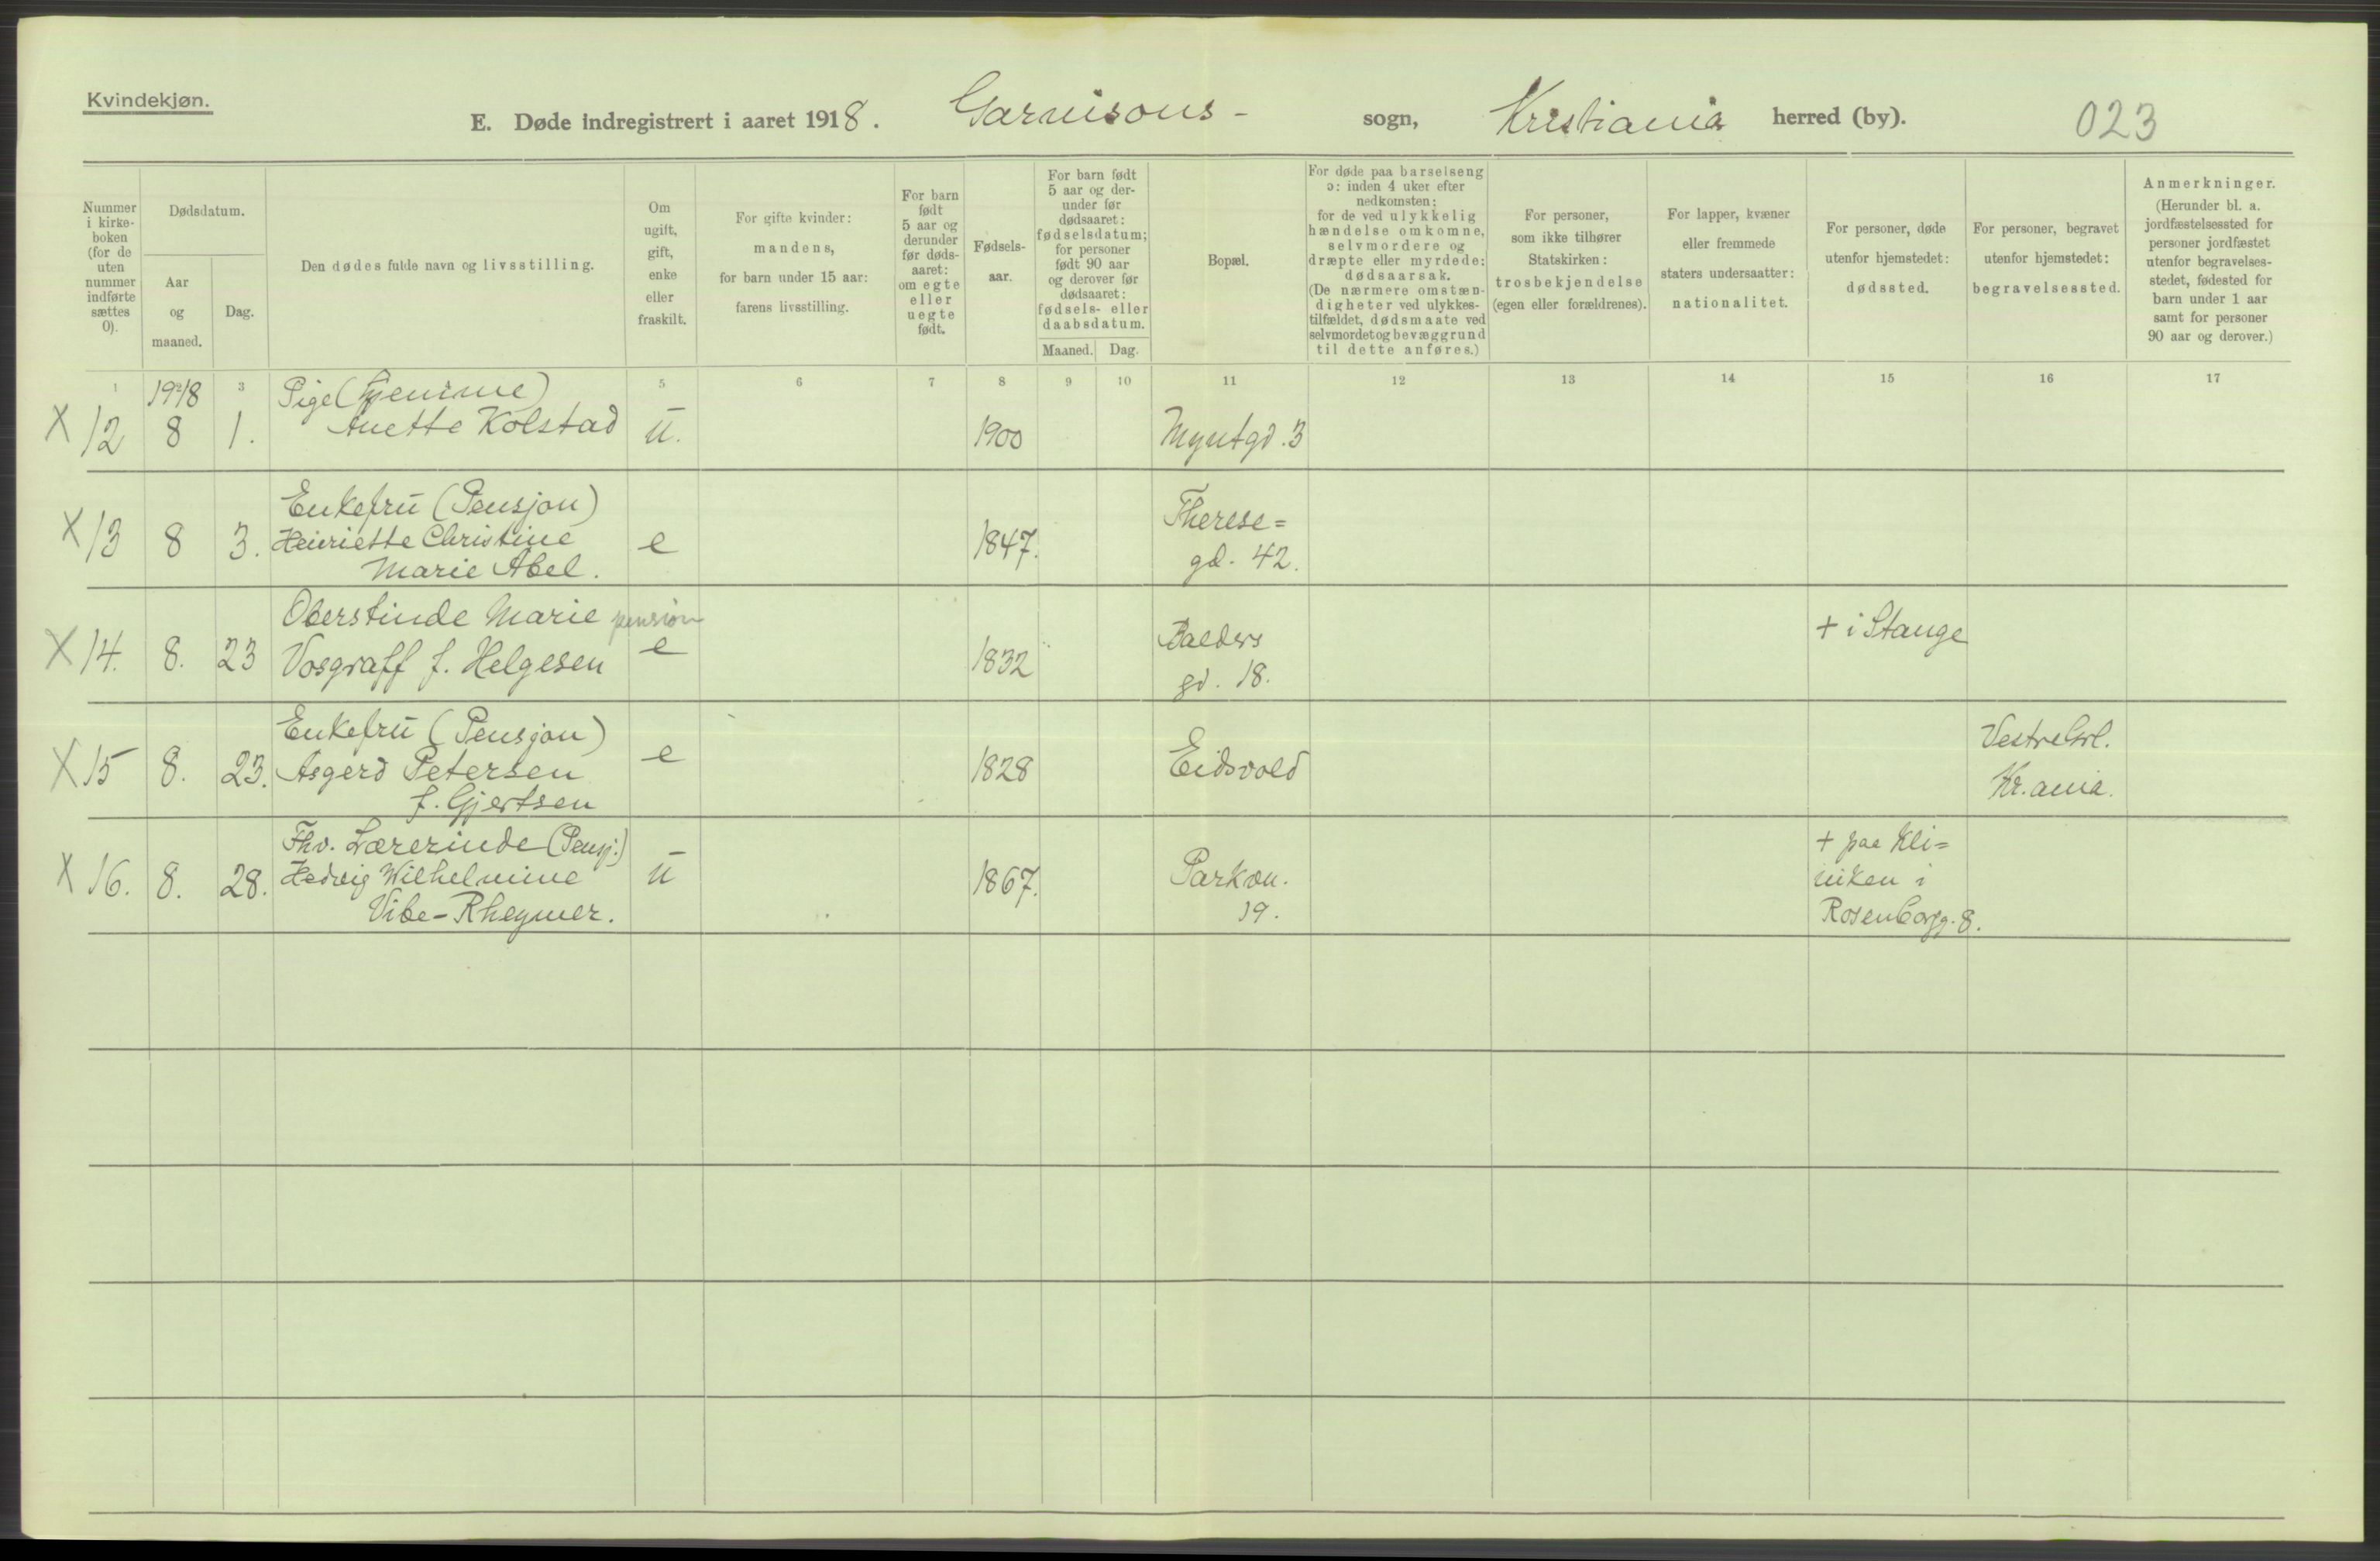 Kvindekjøn.
E. Døde indregistrert i aaret 1918. Garnisons- sogn, Kristiania herred (by). 023
Nummer
i kirke-
boken
(for de
uten
nummer
indførte
sættes
0).
Dødsdatum.
Aar
og
maaned.
Dag.
Den dødes fulde navn og livsstilling.
Om
ugift,
gift,
enke
eller
fraskilt.
For gifte kvinder:
mandens,
for barn under 15 aar:
farens livsstilling.
For barn
født
5 aar og
derunder
før døds-
aaret:
om egte
eller
uegte
født.
Fødsels-
aar.
For barn født
5 aar og der-
under før
dødsaaret:
fødselsdatum;
for personer
født 90 aar
og derover før
dødsaaret:
fødsels- eller
daabsdatum.
Maaned. Dag.
Bopæl.
For døde paa barselseng
ɔ: inden 4 uker efter
nedkomsten;
for de ved ulykkelig
hændelse omkomne,
selvmordere og
dræpte eller myrdede:
dødsaarsak.
(De nærmere omstæn-
digheter ved ulykkes-
tilfældet, dødsmaate ved
selvmordet og bevæggrund
til dette anføres.)
For personer,
som ikke tilhører
Statskirken:
trosbekjendelse
(egen eller forældrenes).
For lapper, kvæner
eller fremmede
staters undersaatter:
nationalitet.
For personer, døde
utenfor hjemstedet:
dødssted.
For personer, begravet
utenfor hjemstedet:
begravelsessted.
Anmerkninger.
(Herunder bl. a.
jordfæstelsessted for
personer jordfæstet
utenfor begravelses-
stedet, fødested for
barn under 1 aar
samt for personer
90 aar og derover.)
1 2 3 5 6 7 8 9 10 11 12 13 14 15 16 17
1918 Pige (hjemme)
X 12 8 1. Anette Kolstad u. 1900 Myntgd. 3
Enkefru (Pensjon)
X 13 8 3. Henriette Christine e 1847. Therese=
Marie Abel. gd. 42.
Oberstinde Marie pension + i Stange
X 14. 8. 23 Vosgraff f. Helgesen e 1832 Balders
gd. 18.
Enkefru (Pensjon) Vestre Grl.
X 15 8. 23. Asgerd Petersen e 1828 Eidsvold Kr.ania.
f. Gjertsen
Fhv. Lærerinde (Pensj.) + paa Kli=
X 16. 8. 28. Hedvig Wilhelmine u 1867. Parkvn. niken i
Vibe-Rheymer. 19. Rosenborgg. 8.